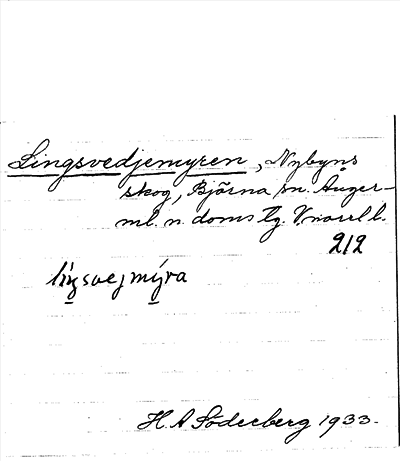 Lingsvedjemyren, Nybyns
skog, Björna sn. Ånger-
ml. n. doms tg. V.norrl l.
212
lingsvejmýra
H. A Söderberg 1933.